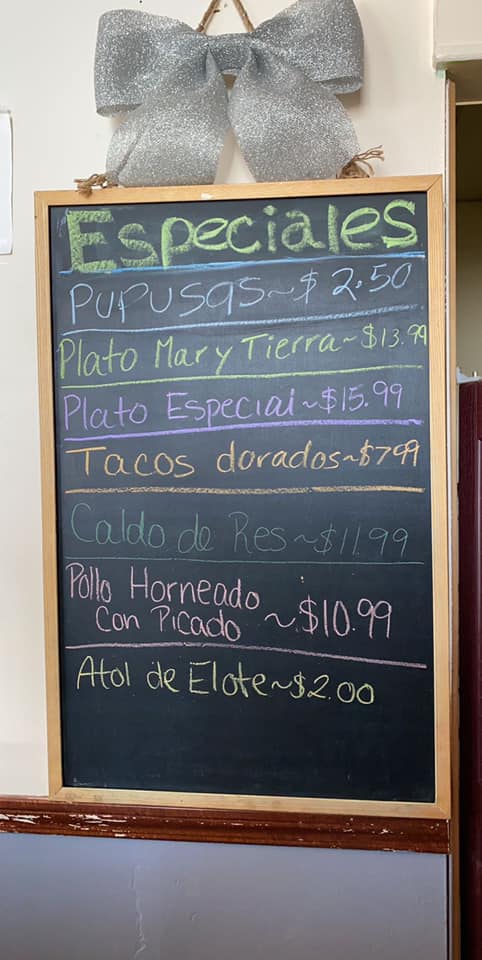 Especiales
PUPUSAS~$ 2.50
Plato Mar y Tierra~$13.99
Plato Especial~$15.99
Tacos dorados~$7.99
Caldo de Res~$11.99
Pollo Horneado
Con Picado ~$10.99
Atol de Elote~$2.00